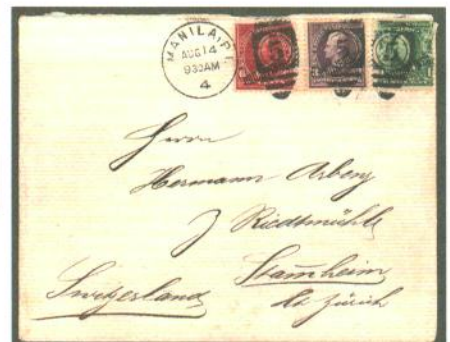 MANILA, P.I.
AUG 14
930AM
4
5
5
Herrn
Hermann Arbenz
Riedtmühle
Stam̄heim
Kt. Zürich
Switzerland